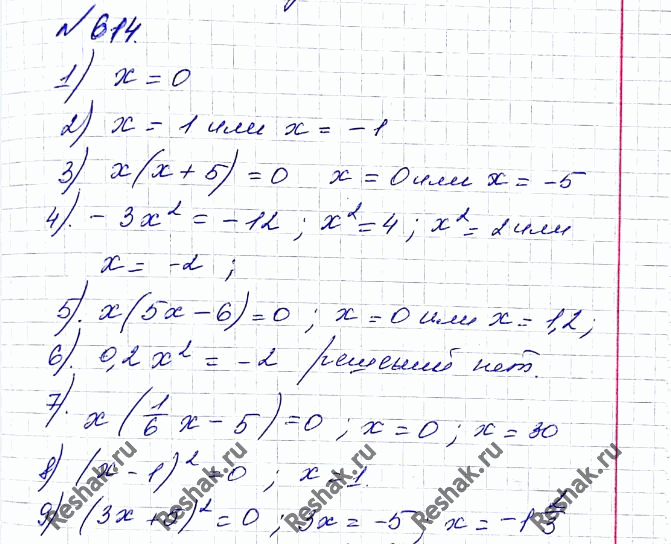 № 614.
1) x = 0
2) x = 1 или x = -1
3) x(x + 5) = 0   x = 0 или x = -5
4). - 3x² = -12 ; x² = 4 ; x² = 2 или
x = -2 ;
5). x(5x - 6) = 0 ; x = 0 или x = 1,2 ;
6). 0,2x² = -2 решений нет.
7). x(1/6 x - 5) = 0 ; x = 0 ; x = 30
8) (x - 1)² = 0 ; x = 1.
9) (3x + 5)² = 0 ; 3x = -5 ; x = -1
Reshak.ru Reshak.ru Reshak.ru Reshak.ru Reshak.ru